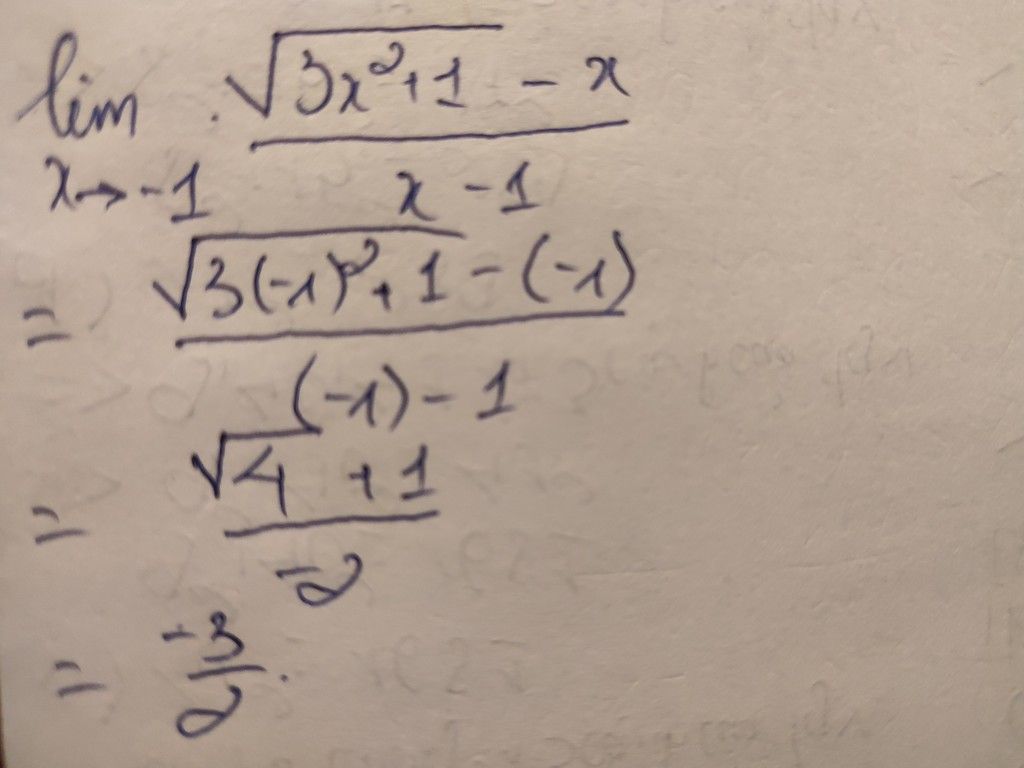 lim √(3x²+1) - x
x→-1 x - 1
= √(3(-1)²+1) - (-1)
(-1) - 1
= √4 + 1
-2
= -3
2.